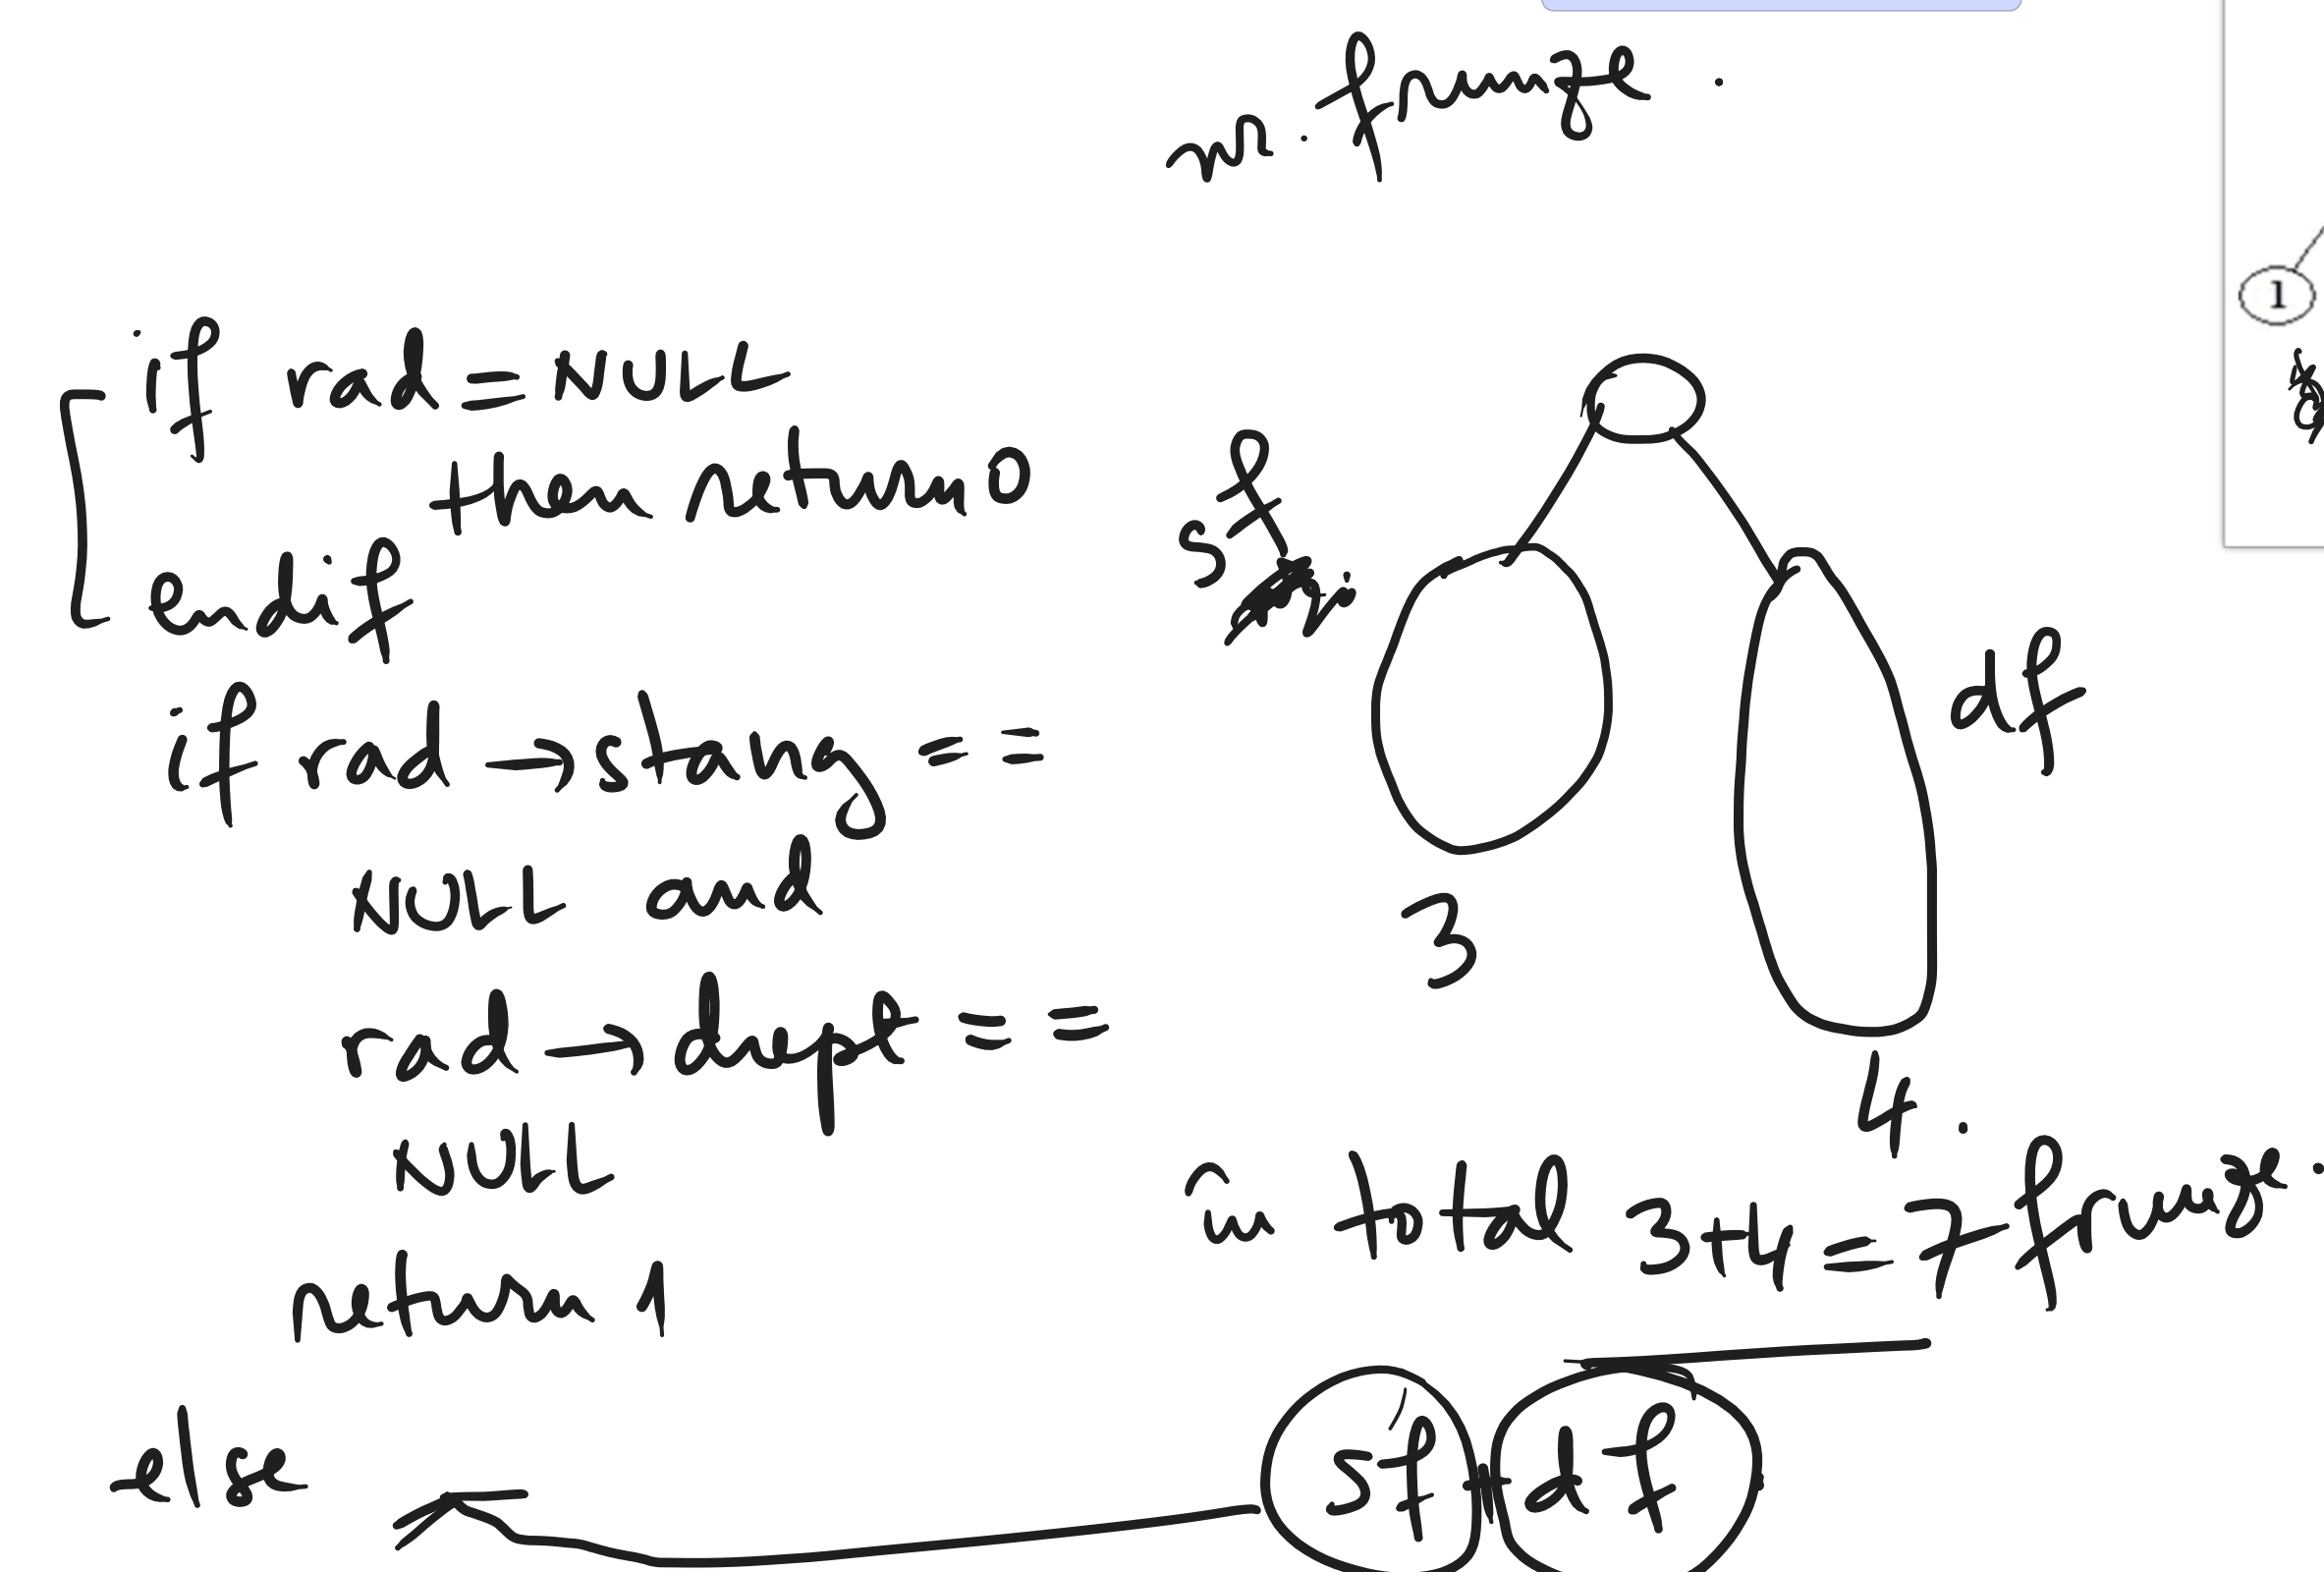 nr. frunze.
if rad = NULL
then return 0
endif
if rad → stang ==
NULL and
rad → drept ==
NULL
return 1
else
sf
df
3
4.
în total 3+4=7 frunze.
sf + df
1